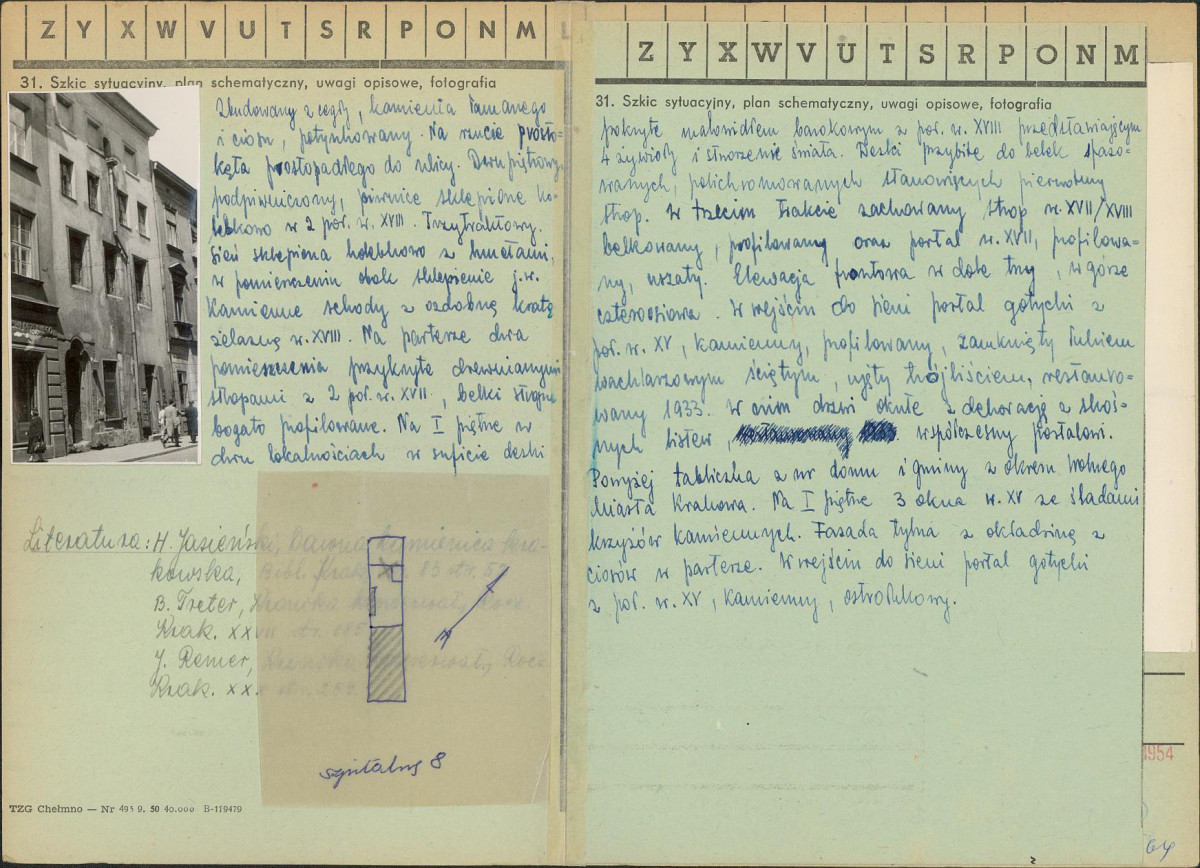 Z Y X W V U T S R P O N M L
31. Szkic sytuacyjny, plan schematyczny, uwagi opisowe, fotografia
Zbudowany z cegły, kamienia łamanego
i ciosu, potynkowany. Na rzucie prosto-
kąta prostopadłego do ulicy. Dwupiętrowy,
podpiwniczony, piwnice sklepione ko-
lebkowo w 2 poł. w. XVIII. Trzytraktowy.
Sień sklepiona kolebkowo z lunetami,
w pomieszczeniu obok sklepienie j.w.
Kamienne schody z ozdobną kratą
żelazną w. XVIII. Na parterze dwa
pomieszczenia przykryte drewnianymi
stropami z 2 poł. w. XVII, belki stropu
bogato profilowane. Na I piętrze w
dwu lokalnościach w suficie deski
Literatura: H. Jasieński, Dawna kamienica kra-
kowska, Bibl. Krak. 83 str.
B. Treter, Kronika konserwat., Rocz.
Krak. str.
J. Remer, Kronika konserwat., Rocz.
Krak. str.
szpitalna 8
TZG Chełmno — Nr 495 9. 50 40.000 B-119479
Z Y X W V U T S R P O N M
31. Szkic sytuacyjny, plan schematyczny, uwagi opisowe, fotografia
pokryte malowidłem barokowym z poł. w. XVIII przedstawiającym
4 żywioły i stworzenie świata. Deski przybite do belek
polichromowanych stanowiących pierwotny
strop. W trzecim trakcie zachowany strop w. XVII/XVIII
belkowany, profilowany oraz portal w. XVII, profilowa-
ny, uszaty. Elewacja frontowa w dole trzy, w górze
czteroosiowa. W wejściu do sieni portal gotycki z
poł. w. XV, kamienny, profilowany, zamknięty łukiem
wachlarzowym ściętym, ujęty trójliściem, restauro-
wany 1933. W nim drzwi okute z dekoracją z skoś-
nych listew, współczesny portalowi.
Powyżej tabliczka z nr domu i gminy z okresu Wolnego
Miasta Krakowa. Na I piętrze 3 okna w. XV ze śladami
krzyżów kamiennych. Fasada tylna z okładziną z
ciosów w parterze. W wejściu do sieni portal gotycki
z poł. w. XV, kamienny, ostrołukowy.
1954
2